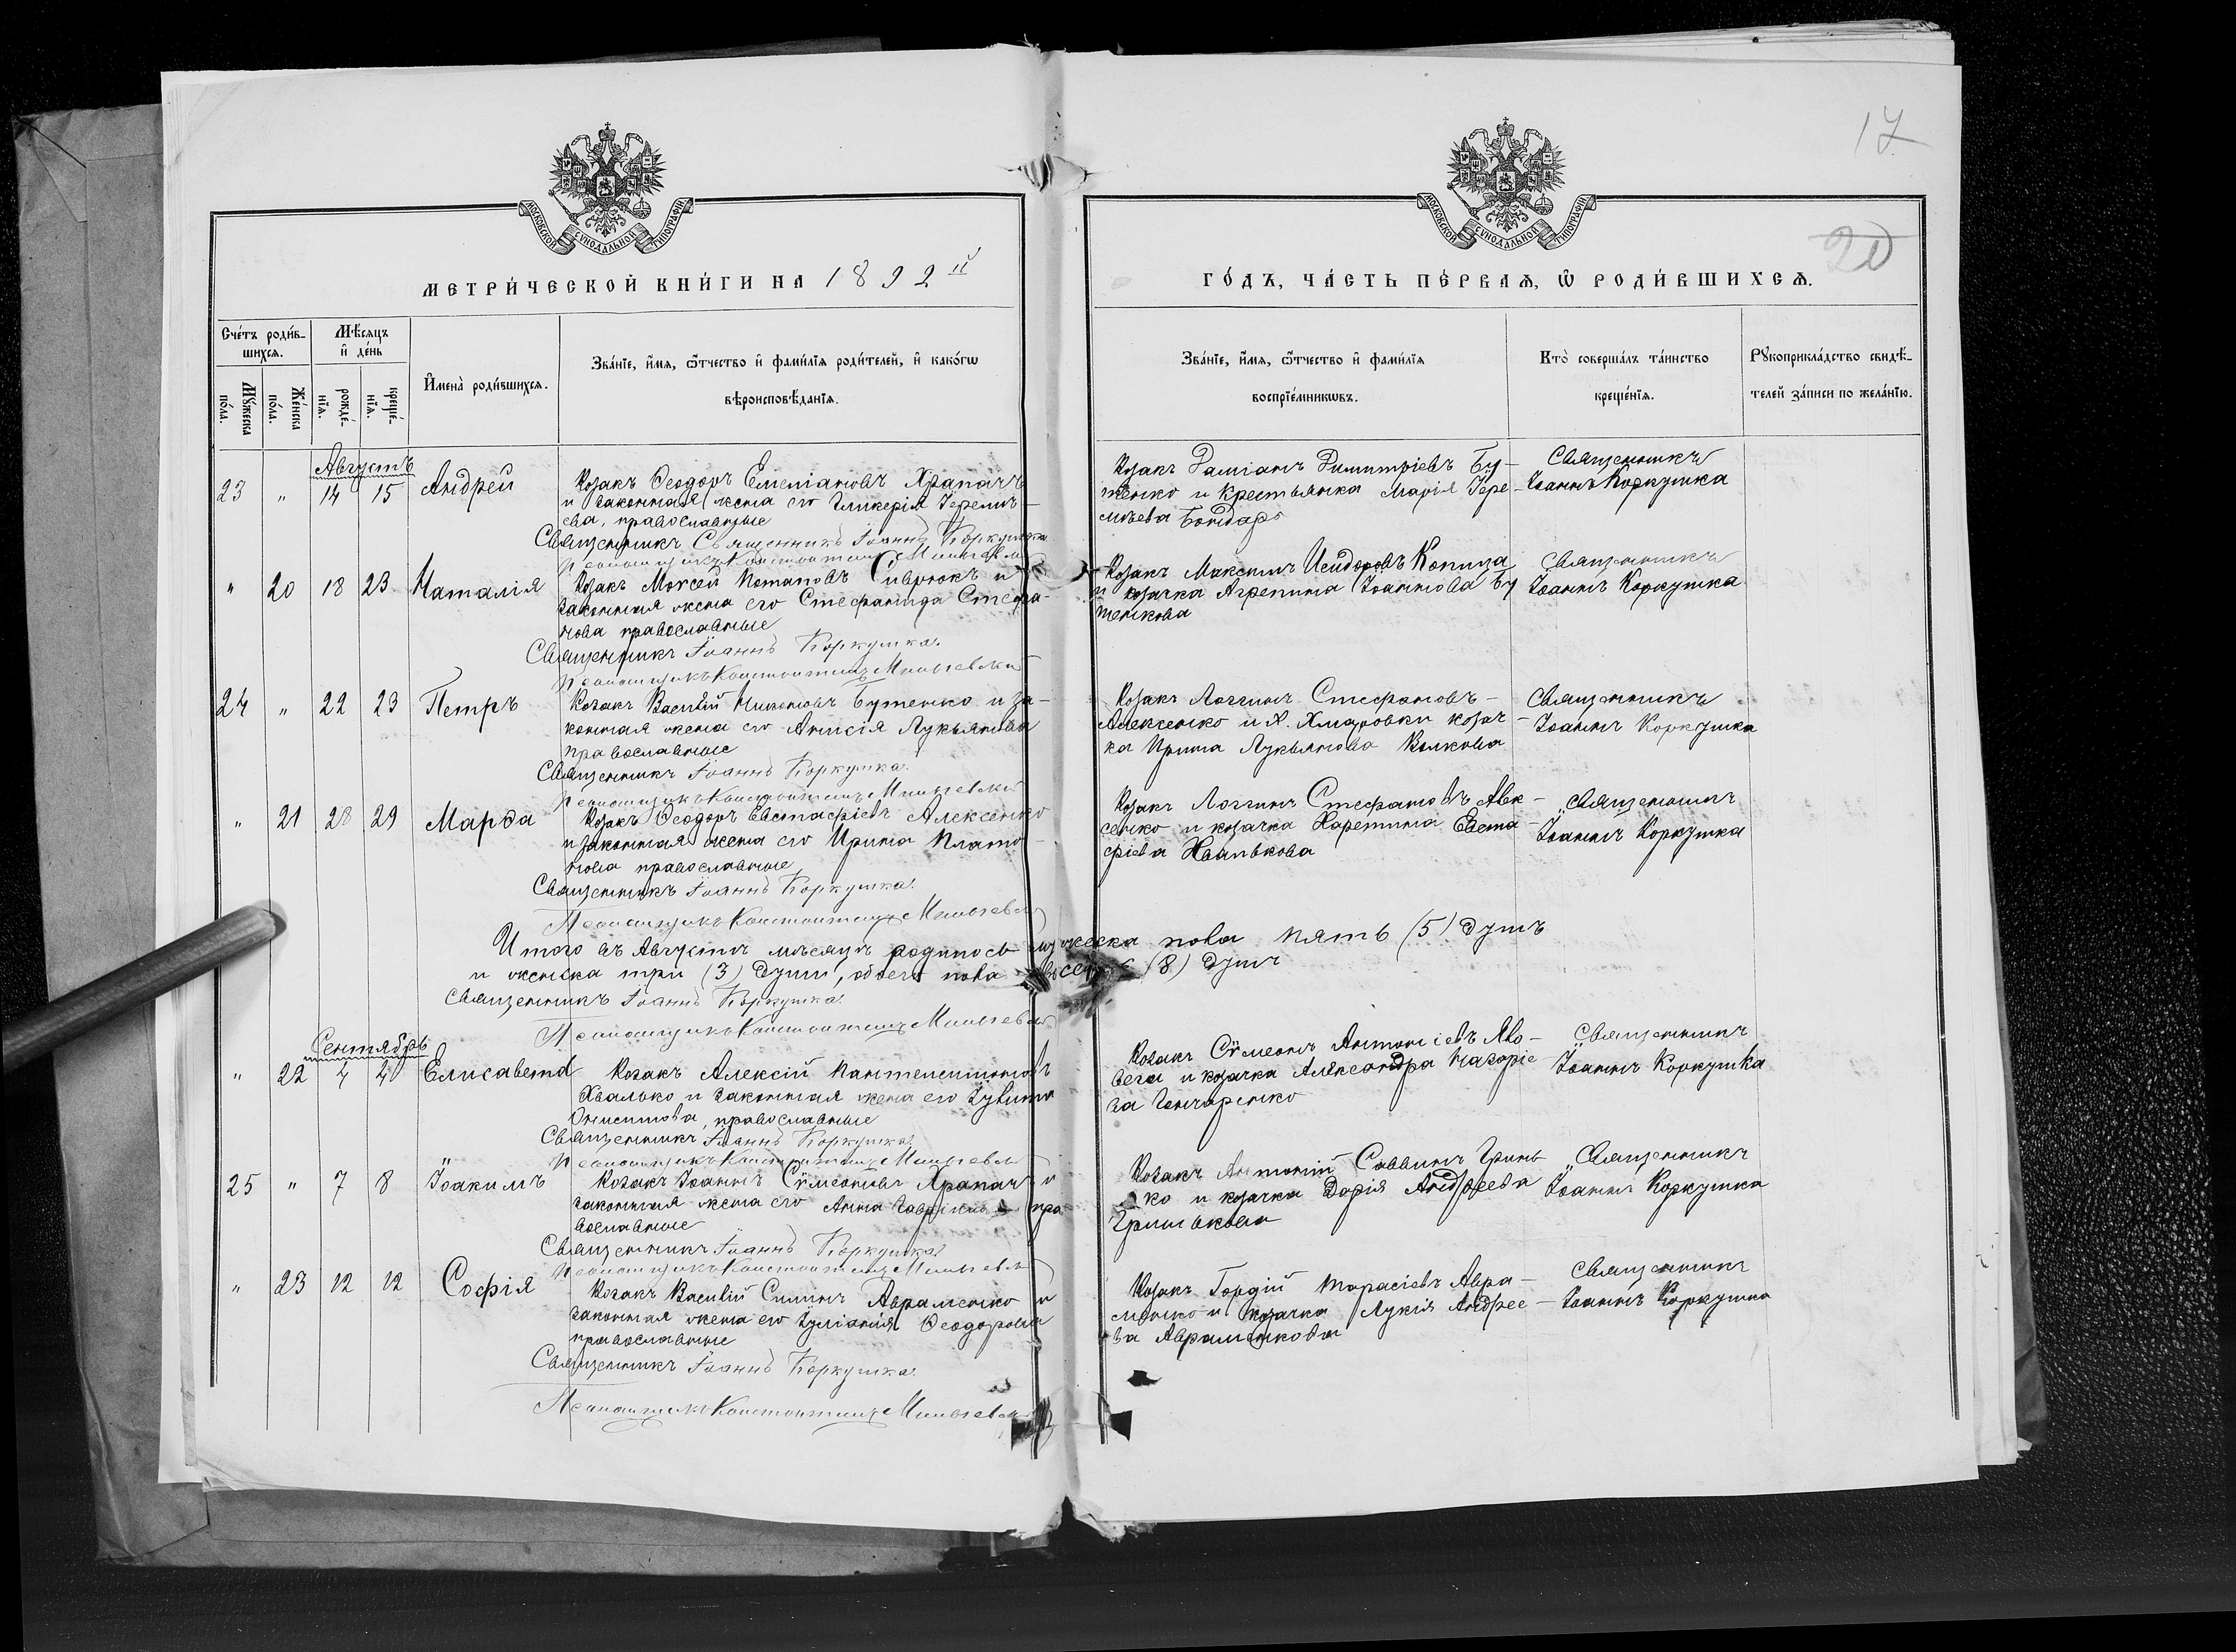 17
20
МОСКОВСКОЙ СѴНОДАЛЬНОЙ ТИПОГРАФІИ
МОСКОВСКОЙ СѴНОДАЛЬНОЙ ТИПОГРАФІИ
МЕТРИ́ЧЕСКОЙ КНИ́ГИ НА 1892 й
ГО́ДЪ, ЧА́СТЬ ПЕ́РВАѦ, Ѡ҆ РОДИ́ВШИХСѦ.
Сче́тъ роди́в-
шихсѧ.
Мꙋ́жеска
по́ла.
Же́нска
по́ла.
Мѣ́сѧцъ
и҆ де́нь
рожде́-
нїѧ.
креще́-
нїѧ.
И҆мена̀ роди́вшихсѧ.
Зва́нїе, и҆́мѧ, ѻ҆́тчество и҆ фами́лїѧ роди́телей, и҆ како́гѡ
вѣроисповѣ́данїѧ.
Зва́нїе, и҆́мѧ, ѻ҆́тчество и҆ фами́лїѧ
воспрїе́мникѡвъ.
Кто̀ соверша́лъ та́инство
креще́нїѧ.
Рꙋкоприкла́дство свидѣ́-
телей за́писи по жела́нїю.
Августъ
23 " 14 15 Андрей
Козакъ Ѳеодоръ Емеліановъ Храпачъ
и законная жена его Гликерія Іереміе-
ева, православные
Священникъ Священникъ Іоаннъ Коркушка
Козакъ Даміанъ Димитріевъ Бу-
тенко и крестьянка Марія Іере-
міева Бондарь
Священникъ
Іоаннъ Коркушка
" 20 18 23 Наталія
Козакъ Моисей Потаповъ Сиврюкъ и
законная жена его Стефанида Стефа-
нова православные
Священникъ Іоаннъ Коркушка.
Псаломщикъ Константинъ
Козакъ Максимъ Исидоровъ Копица
и козачка Агрепина Іоаннова Бу
тенкова
Священникъ
Іоаннъ Коркушка
24 " 22 23 Петръ
Козакъ Василій Никоновъ Бутенко и за-
конная жена его Анисія Лукьянова
православные
Священникъ Іоаннъ Коркушка.
Псаломщикъ Константинъ
Козакъ Логгинъ Стефановъ-
Алексенко и х. Хмаровки козач-
ка Ирина Лукьянова Волкова
Священникъ
Іоаннъ Коркушка
" 21 28 29 Марѳа
Козакъ Ѳеодоръ Евстафіевъ Алексенко
и законная жена его Ирина Плато-
нова православные
Священникъ Іоаннъ Коркушка.
Псаломщикъ Константинъ
Козакъ Логгинъ Стефановъ Алек-
сенко и козачка Харетина Евста-
фіева Иванькова
Священникъ
Іоаннъ Коркушка
Итого въ Августѣ мѣсяцѣ родилось мужеска пола пять (5) душъ
и женска три (3) души, обоего пола восемь (8) душъ
Священникъ Іоаннъ Коркушка.
Псаломщикъ Константинъ
Сентябрь
" 22 4 4 Елисавета
Козакъ Алексій Пантелеимоновъ
Хвалько и законная жена его Іулита
Онисимова, православные
Священникъ Іоаннъ Коркушка.
Псаломщикъ Константинъ
Козакъ Сѵмеонъ Антоніевъ Яко-
вега и козачка Александра Назаріе-
ва Гончаренко
Священникъ
Іоаннъ Коркушка
25 " 7 8 Іоакимъ
Козакъ Іоаннъ Сѵмеоновъ Храпачъ и
законная жена его Анна Гавріилова пра-
вославные
Священникъ Іоаннъ Коркушка
Псаломщикъ Константинъ
Козакъ Антоній Саввинъ Гринь-
ко и козачка Дарія Андреева
Гринькова
Священникъ
Іоаннъ Коркушка
" 23 12 12 Софія
Козакъ Василій Силинъ Авраменко и
законная жена его Іуліанія Ѳеодорова
православные
Священникъ Іоаннъ Коркушка.
Псаломщикъ Константинъ
Козакъ Гордій Тарасіевъ Авра-
менко и козачка Лукія Андрее-
ва Авраменкова
Священникъ
Іоаннъ Коркушка